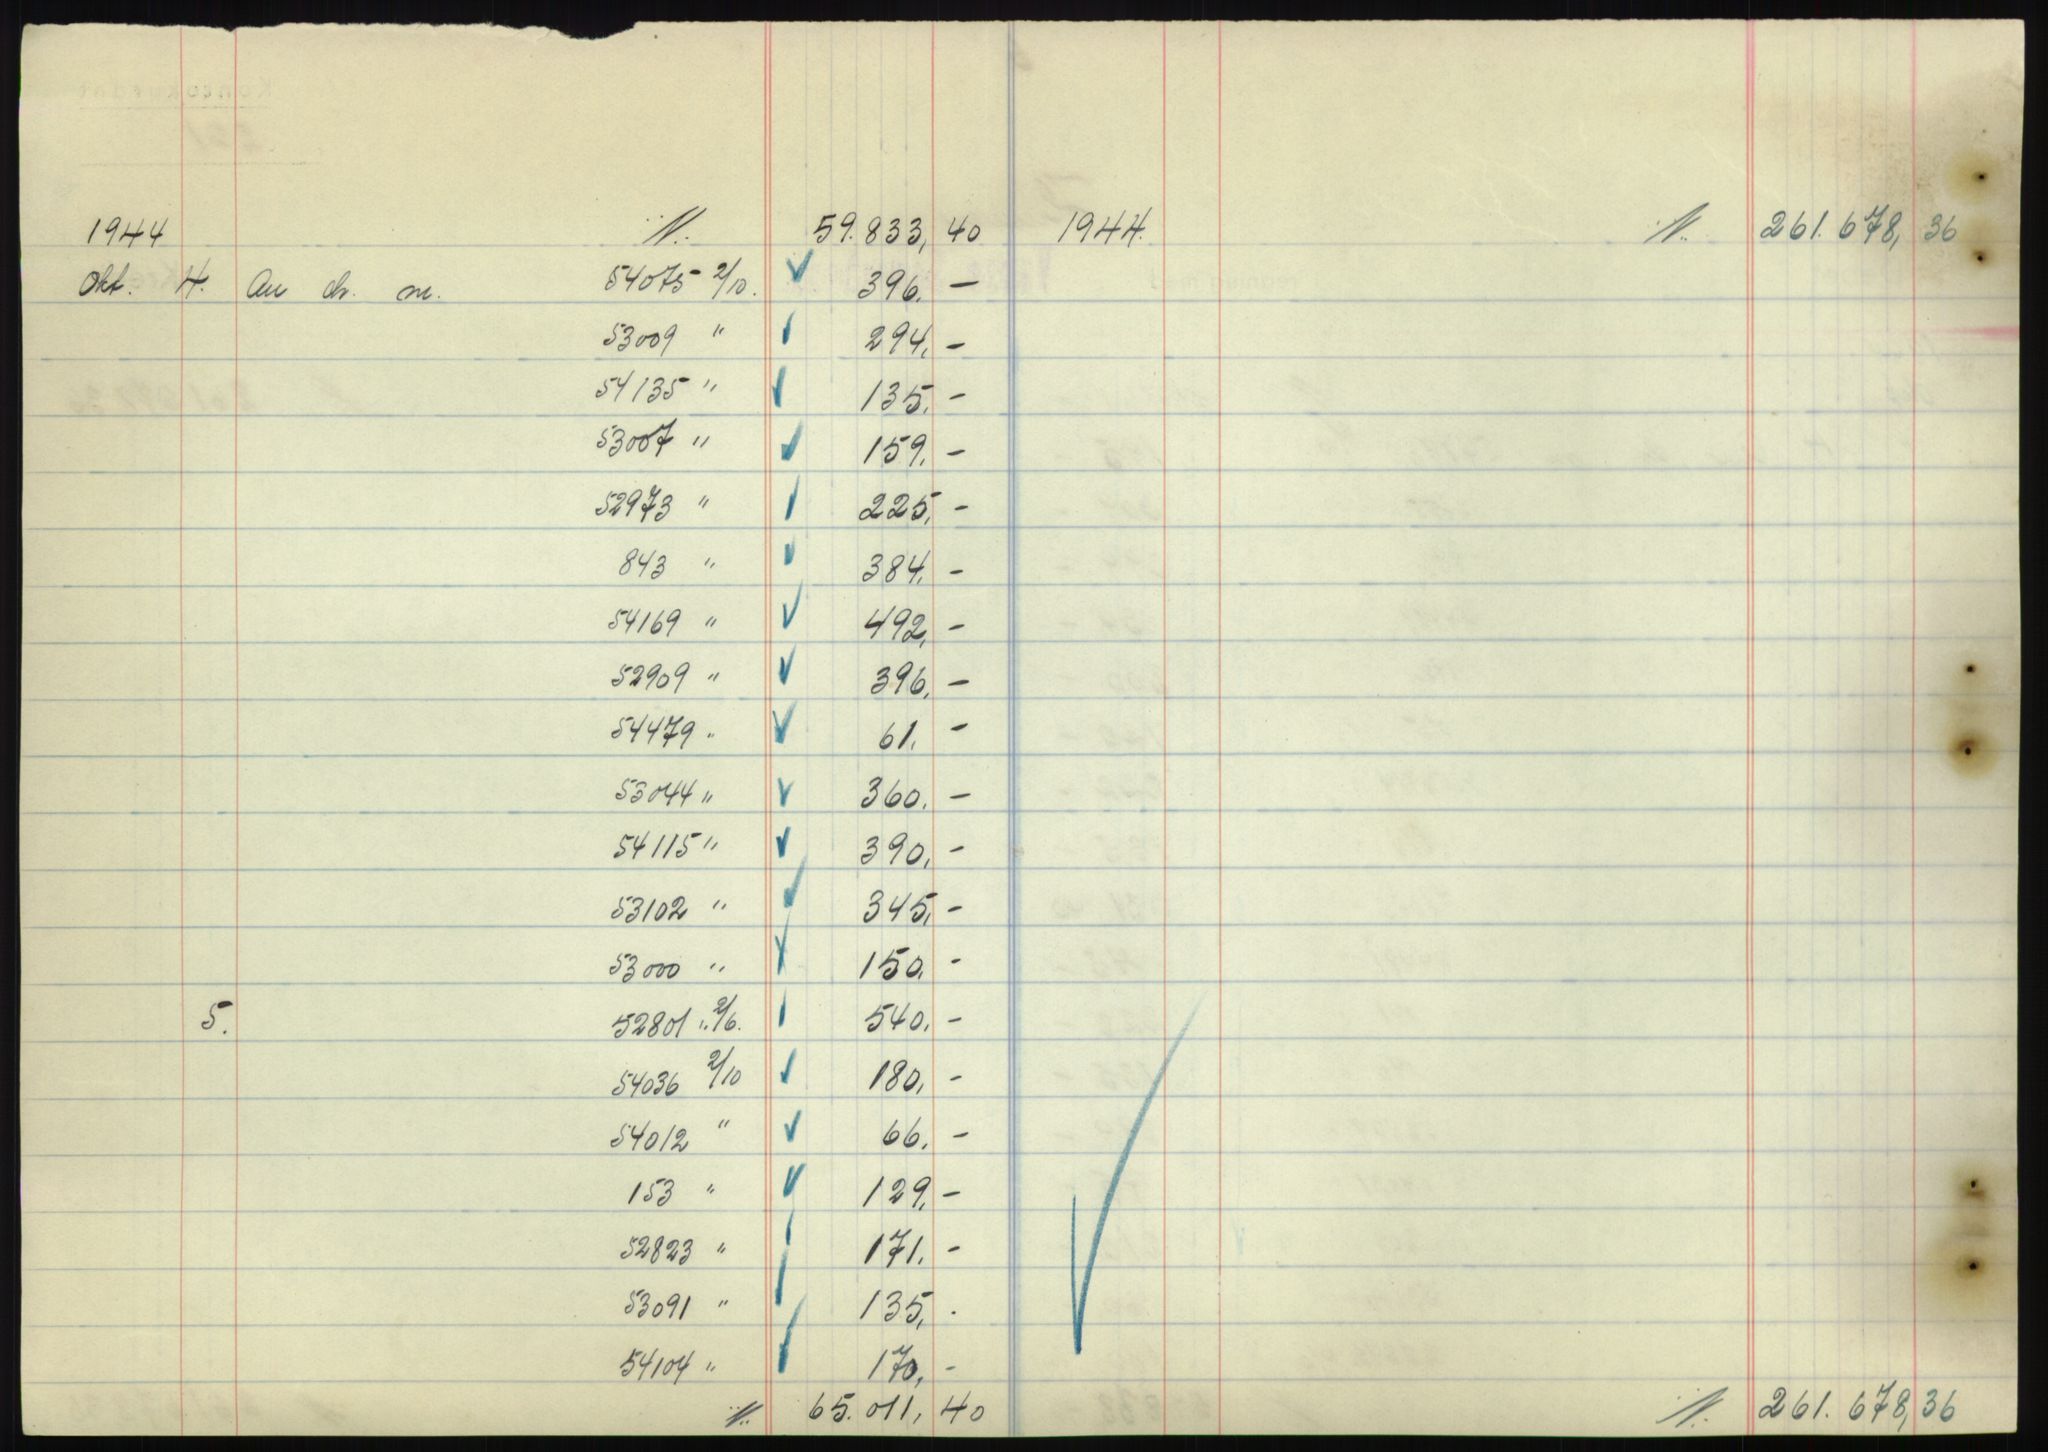 1944 59.833,40
Okt. 4. An ch. m. 54075 2/10. 396,—
53009 " 294,—
54135 " 135,—
53007 " 159,—
52973 " 225,—
843 " 384,—
54169 " 492,—
52909 " 396,—
54479 " 61,—
53044 " 360,—
54115 " 390,—
53102 " 345,—
53000 " 150,—
5. 52801 " 2/6. 540,—
54036 2/10 180,—
54012 " 66,—
153 " 129,—
52823 " 171,—
53091 " 135,.
54104 " 170,-
65.011,40
1944. 261.678,36
261.678,36